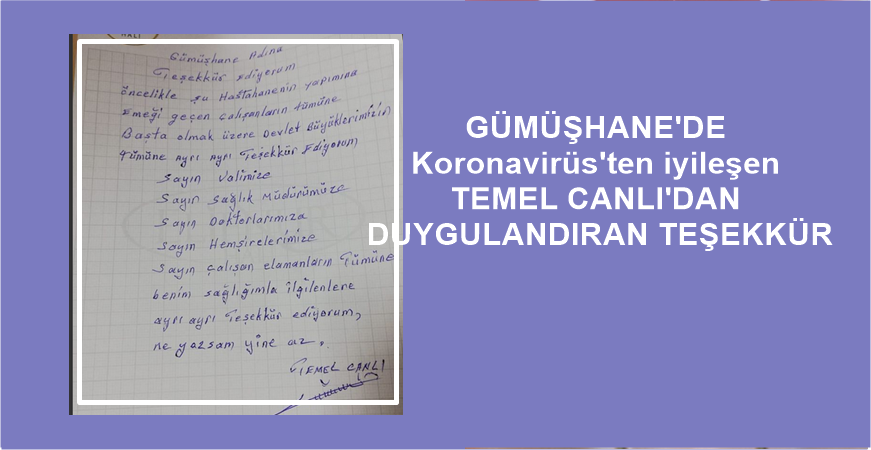 HALI
Gümüşhane Adına
Teşekkür Ediyorum
öncelikle şu Hastahanenin yapımına
Emeği geçen çalışanların tümüne
Başta olmak üzere Devlet Büyüklerimizin
tümüne ayrı ayrı Teşekkür Ediyorum
Sayın Valimize
Sayın Sağlık Müdürümüze
Sayın Doktorlarımıza
Sayın Hemşirelerimize
Sayın çalışan elamanların Tümüne
benim sağlığımla ilgilenlere
ayrı ayrı Teşekkür ediyorum,
ne yazsam yine az.
TEMEL CANLI
GÜMÜŞHANE'DE
Koronavirüs'ten iyileşen
TEMEL CANLI'DAN
DUYGULANDIRAN TEŞEKKÜR